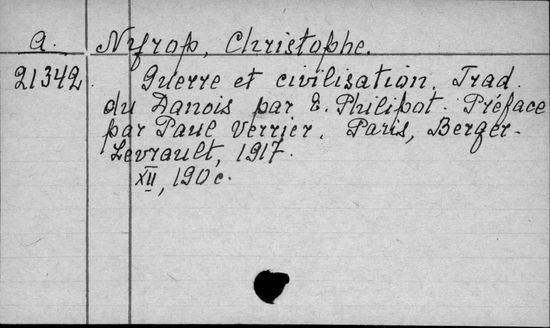 a. Nyrop, Christophe.
21342 Guerre et civilisation. Trad.
du Danois par E. Philipot. Préface
par Paul Verrier. Paris, Berger-
Levrault, 1917.
XII, 190 c.